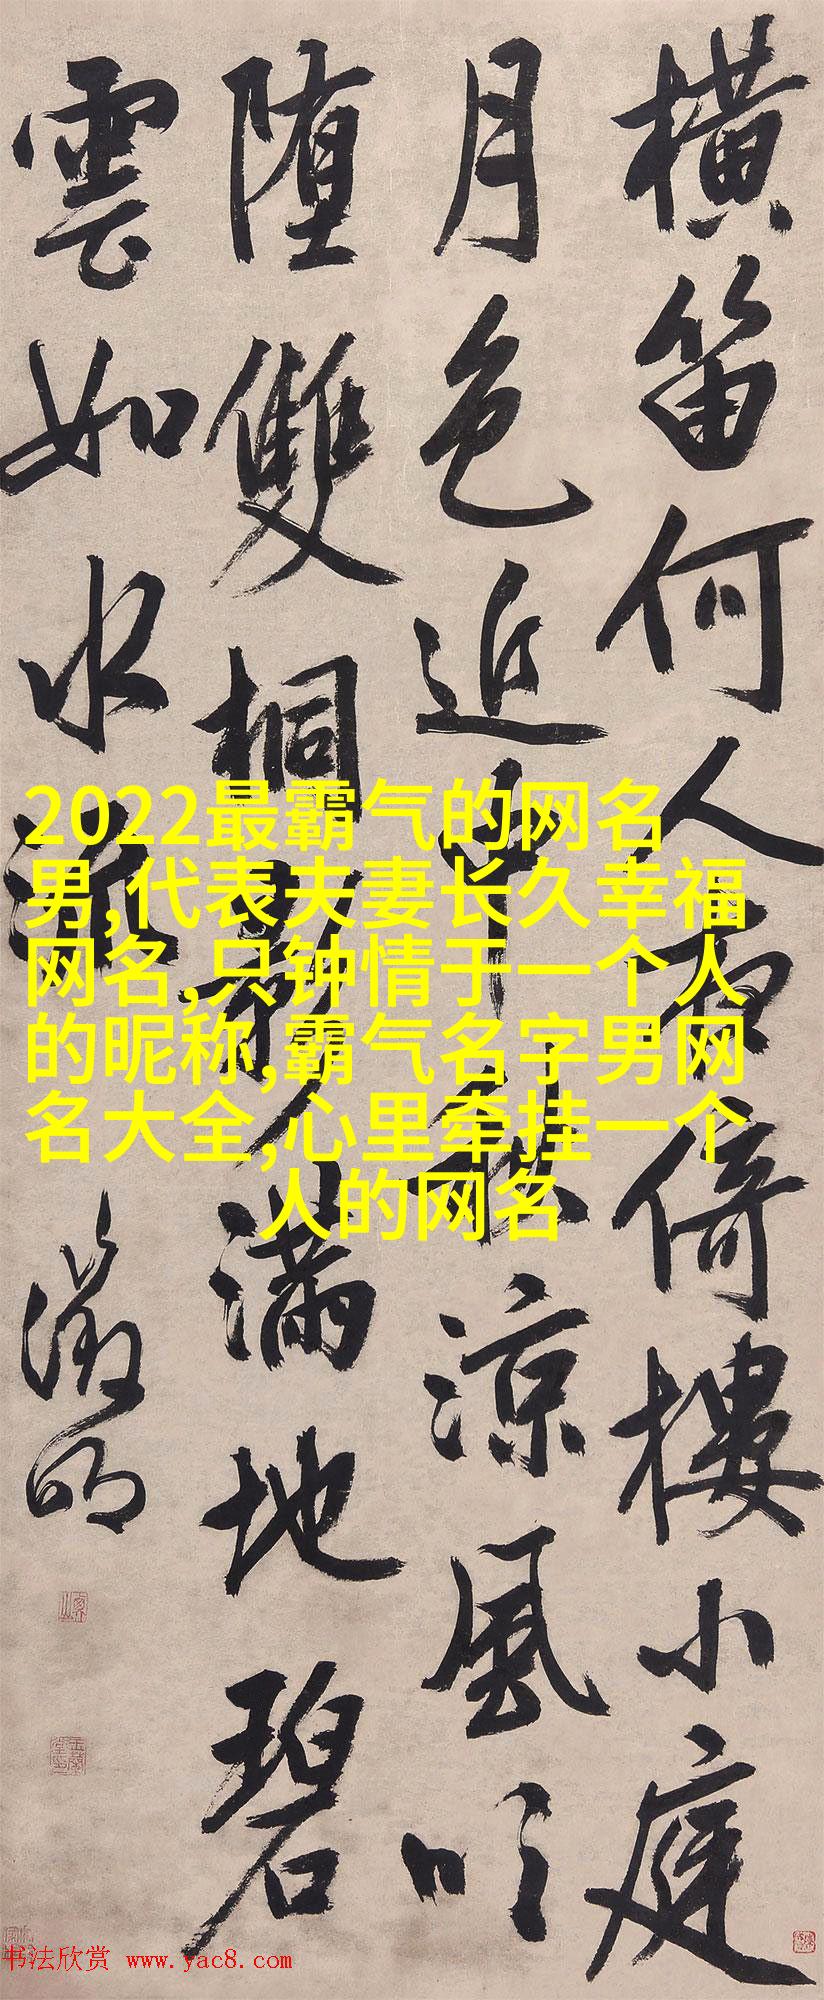 橫笛何人夜倚樓小庭
月色近中秋涼風吹
堕雙桐影滿地碧
雲如水流
徵明
2022最霸气的网名
男,代表夫妻长久幸福
网名,只钟情于一个人
的昵称,霸气名字男网
名大全,心里牵挂一个
人的网名
书法欣赏 www.yac8.com